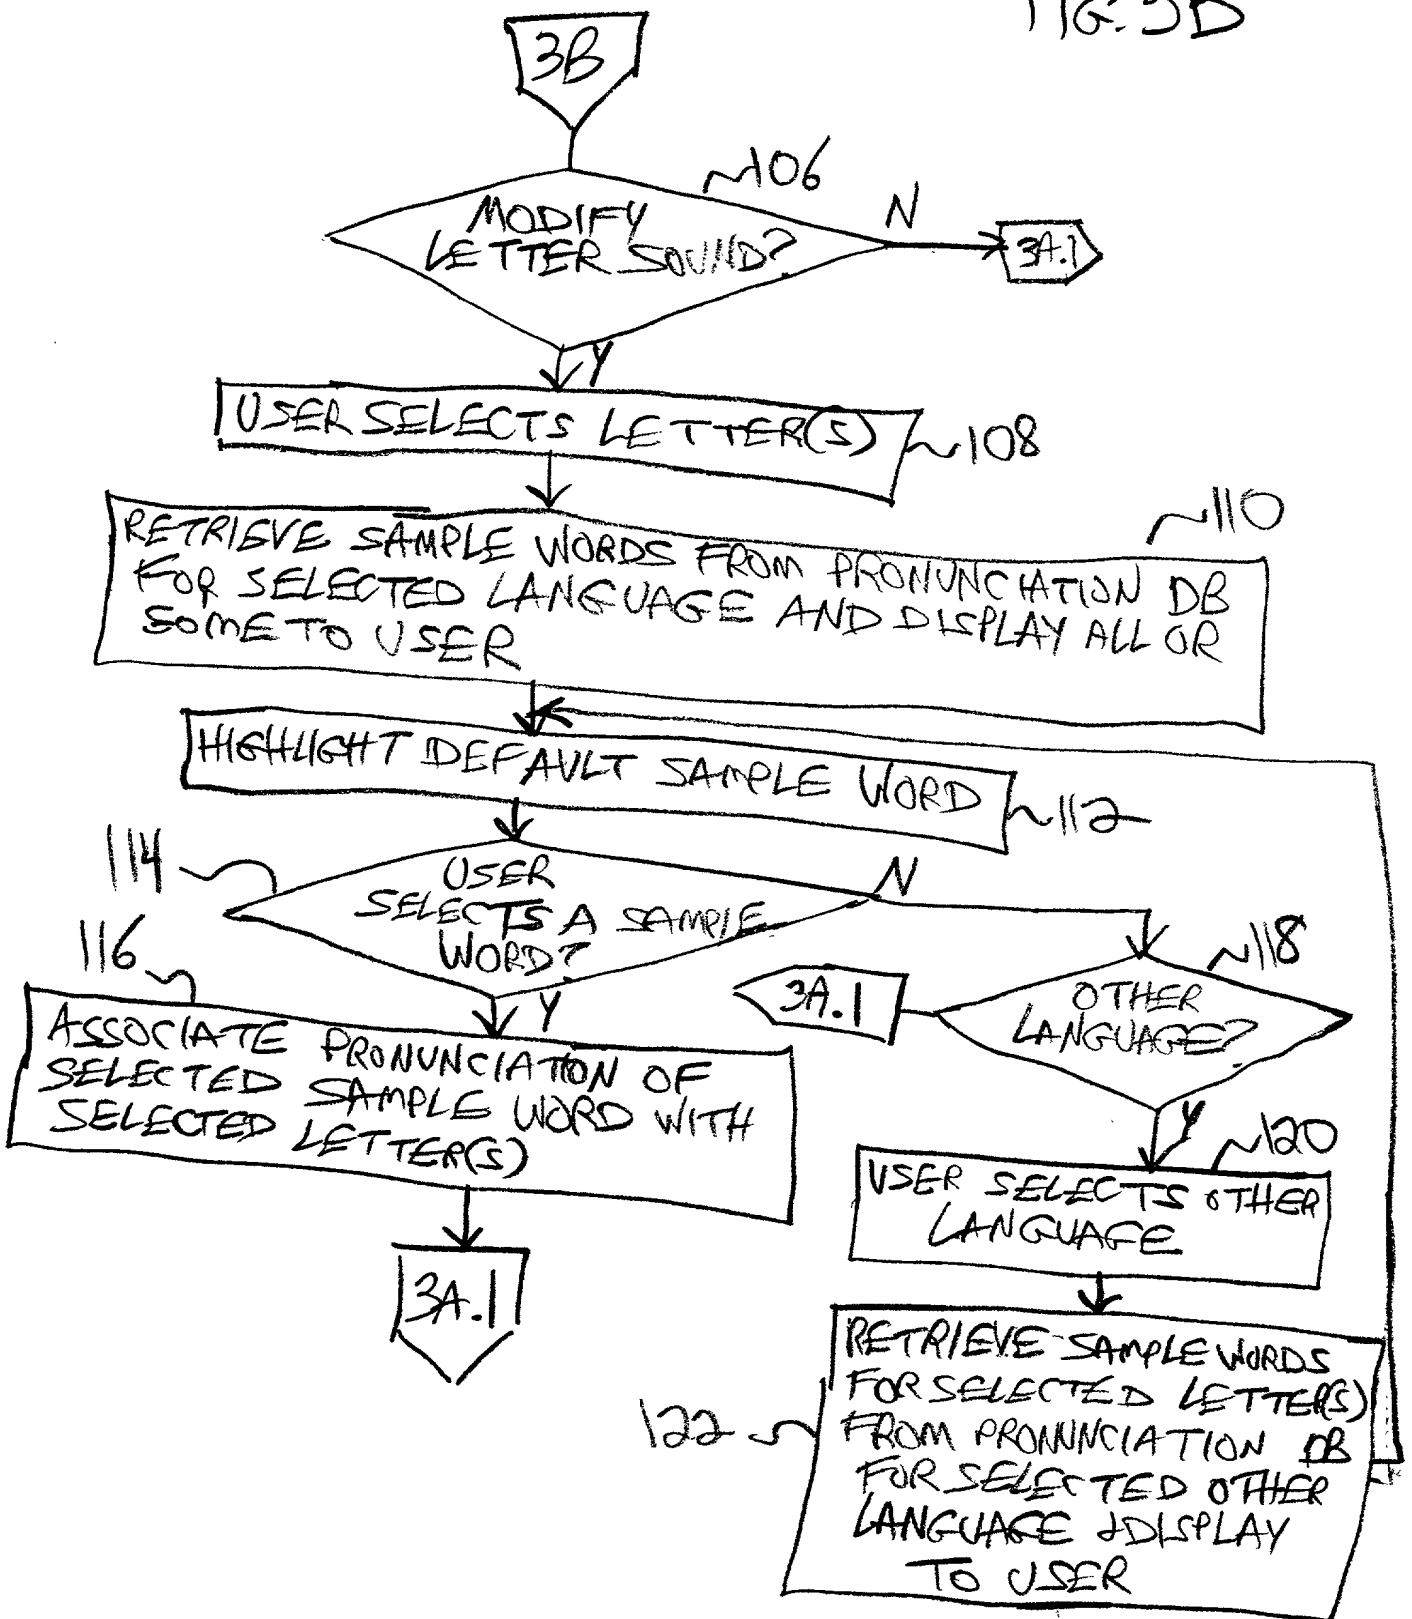 FIG. 3B
3B
106
MODIFY
LETTER SOUND?
N
3A.1
Y
USER SELECTS LETTER(S)
108
110
RETRIEVE SAMPLE WORDS FROM PRONUNCIATION DB
FOR SELECTED LANGUAGE AND DISPLAY ALL OR
SOME TO USER
HIGHLIGHT DEFAULT SAMPLE WORD
112
114
USER
SELECTS A SAMPLE
WORD?
N
116
Y
118
OTHER
LANGUAGE?
3A.1
ASSOCIATE PRONUNCIATION OF
SELECTED SAMPLE WORD WITH
SELECTED LETTER(S)
Y
120
USER SELECTS OTHER
LANGUAGE
3A.1
122
RETRIEVE SAMPLE WORDS
FOR SELECTED LETTER(S)
FROM PRONNNCIATION DB
FOR SELECTED OTHER
LANGUAGE & DISPLAY
TO USER